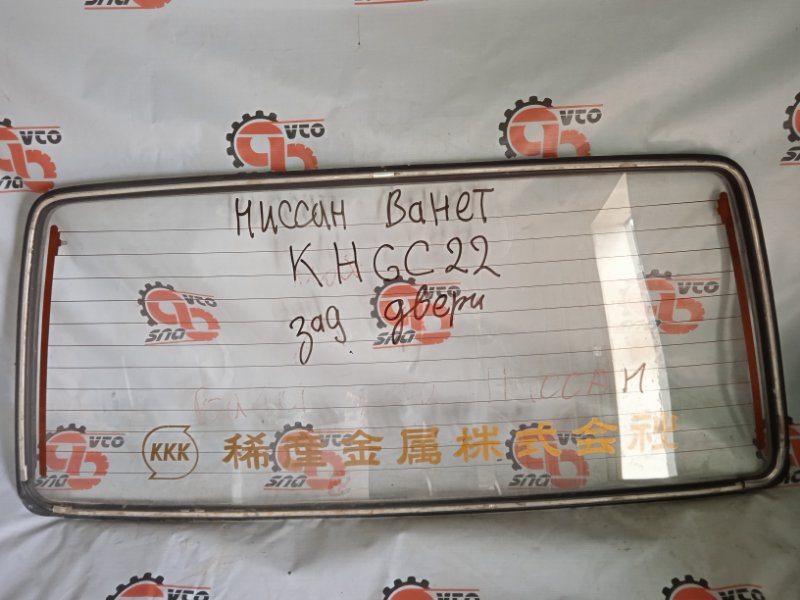 Ниссан Ванет
KHGC22
зад. двери
Ниссан
KKK 稀産金属株式会社